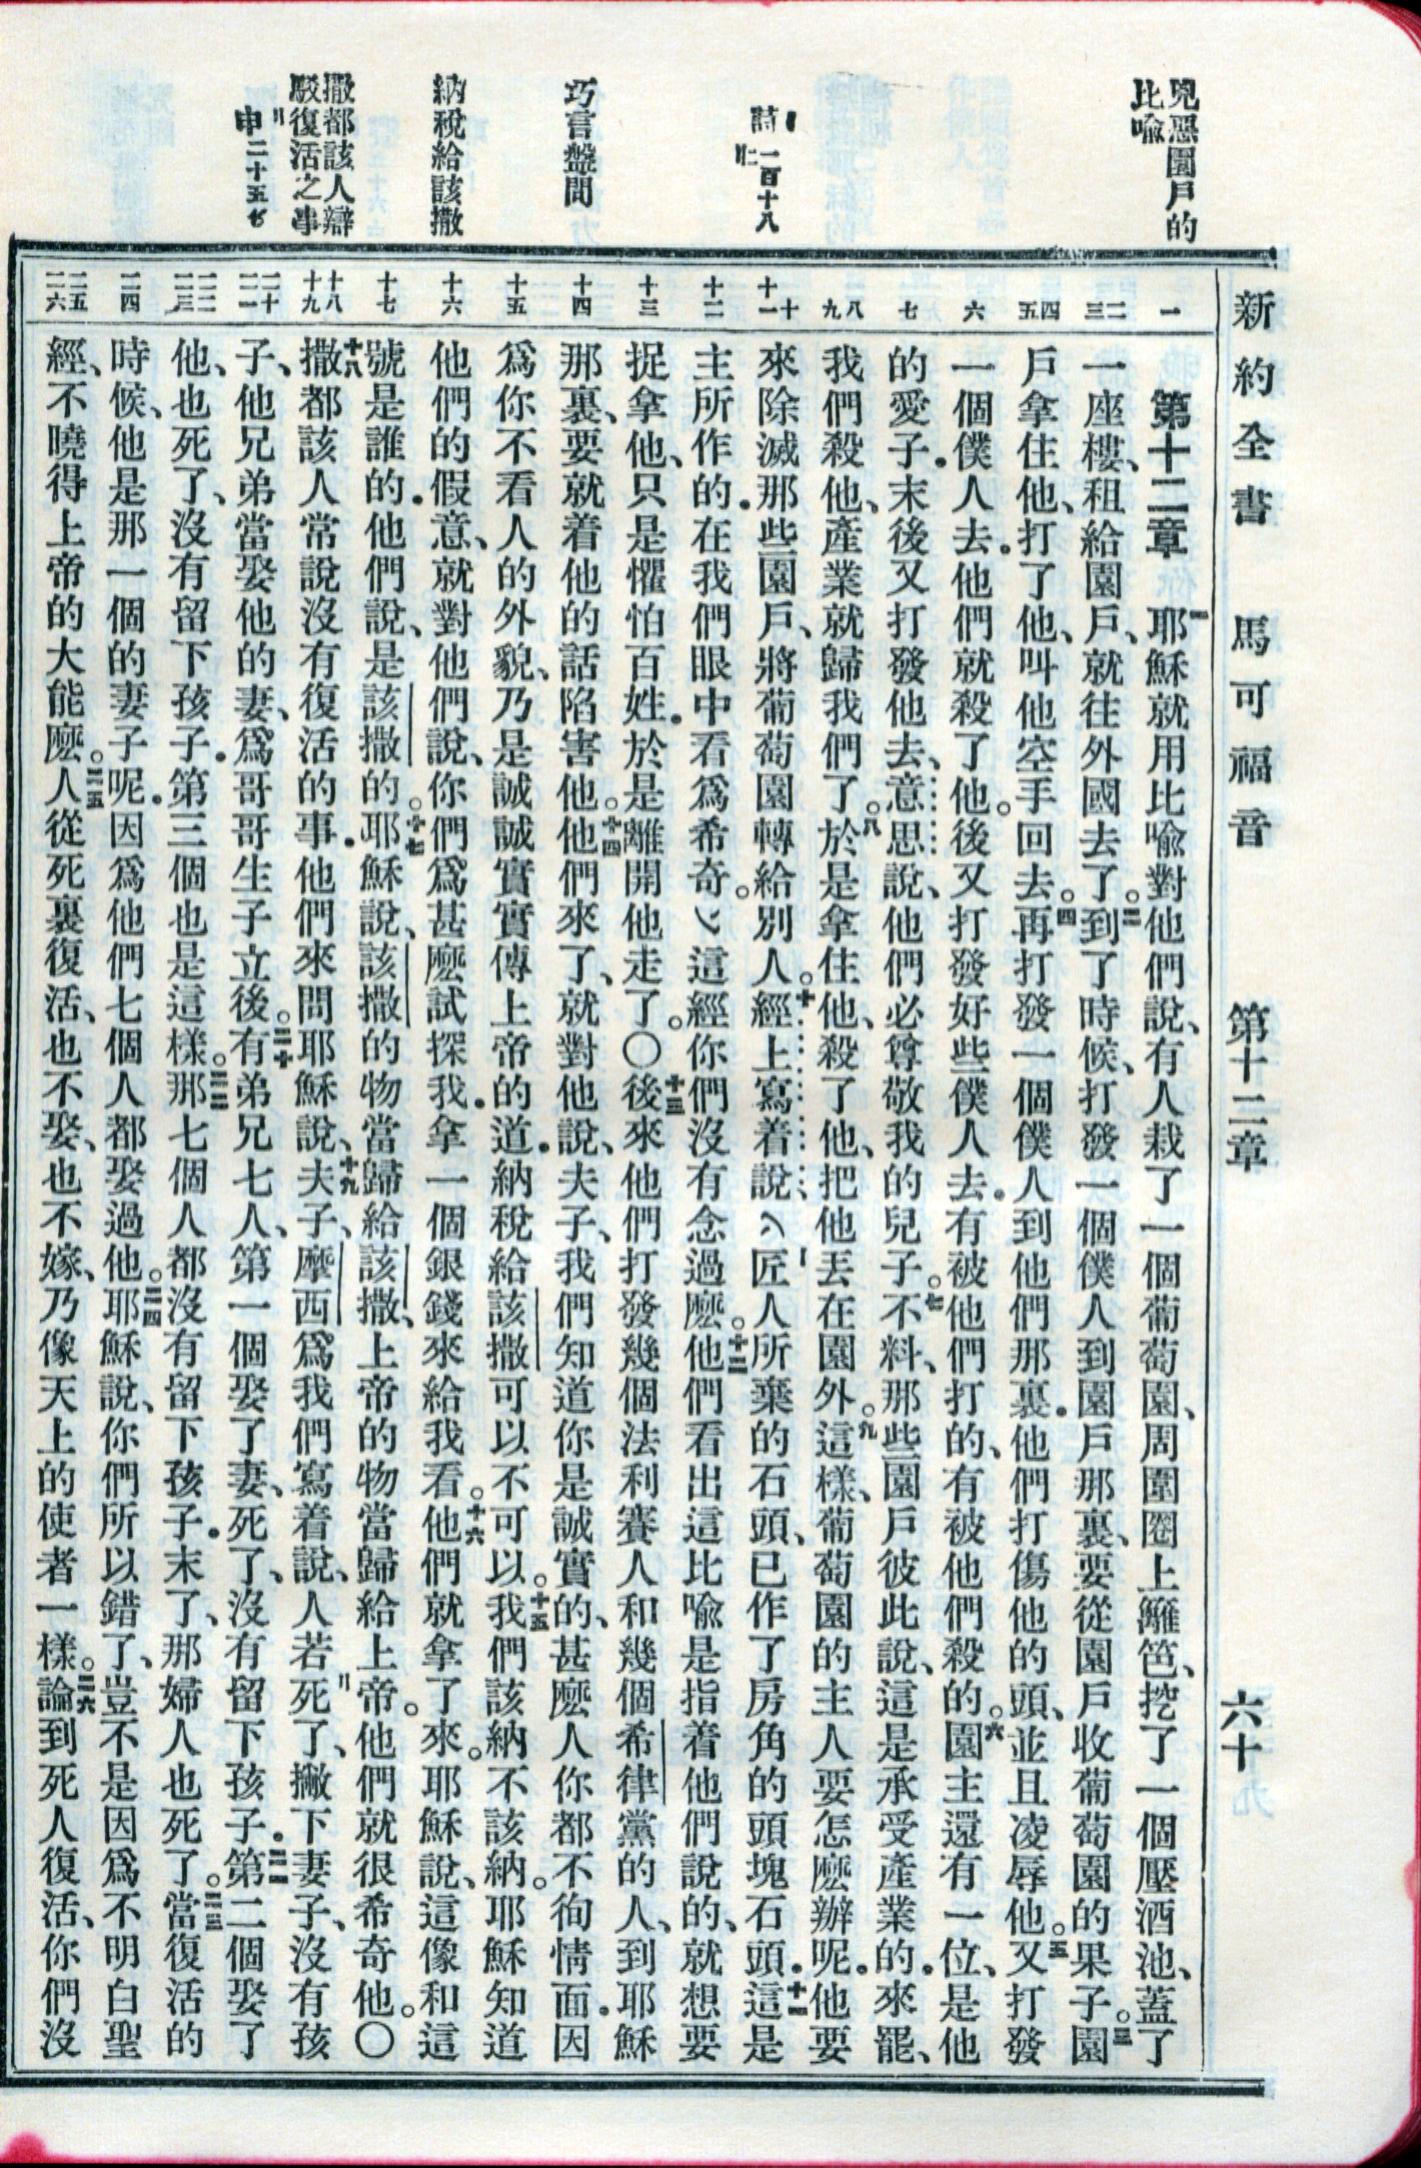 新約全書　馬可福音　第十二章　六十
兇惡園戶的
比喻
詩一百十八
巧言盤問
納稅給該撒
撒都該人辯
駁復活之事
申二十五
一
二
三
四
五
六
七
八
九
十
十一
十二
十三
十四
十五
十六
十七
十八
十九
二十
二一
二二
二三
二四
二五
二六
第十二章　一耶穌就用比喻對他們說、有人栽了一個葡萄園、周圍圈上籬笆、挖了一個壓酒池、蓋了
一座樓、租給園戶、就往外國去了。二到了時候、打發一個僕人到園戶那裏、要從園戶收葡萄園的果子。三園
戶拿住他、打了他、叫他空手回去。四再打發一個僕人到他們那裏．他們打傷他的頭、並且凌辱他。五又打發
一個僕人去．他們就殺了他。後又打發好些僕人去．有被他們打的、有被他們殺的。六園主還有一位、是他
的愛子．末後又打發他去、意思說、他們必尊敬我的兒子。七不料、那些園戶彼此說、這是承受產業的．來罷、
我們殺他、產業就歸我們了。八於是拿住他、殺了他、把他丟在園外。九這樣、葡萄園的主人要怎麽辦呢．他要
來除滅那些園戶、將葡萄園轉給別人。十經上寫着說、匠人所棄的石頭、已作了房角的頭塊石頭．十一這是
主所作的．在我們眼中看爲希奇。這經你們沒有念過麽。十二他們看出這比喻是指着他們說的、就想要
捉拿他、只是懼怕百姓．於是離開他走了。〇十三後來他們打發幾個法利賽人和幾個希律黨的人、到耶穌
那裏、要就着他的話陷害他。十四他們來了、就對他說、夫子、我們知道你是誠實的、甚麽人你都不徇情面．因
爲你不看人的外貌、乃是誠誠實實傳上帝的道．納稅給該撒可以不可以。十五我們該納不該納。耶穌知道
他們的假意、就對他們說、你們爲甚麽試探我．拿一個銀錢來給我看。十六他們就拿了來。耶穌說、這像和這
號是誰的．他們說、是該撒的。十七耶穌說、該撒的物當歸給該撒、上帝的物當歸給上帝。他們就很希奇他。〇
十八撒都該人常說沒有復活的事．他們來問耶穌說、十九夫子、摩西爲我們寫着說、人若死了、撇下妻子、沒有孩
子、他兄弟當娶他的妻、爲哥哥生子立後。二十有弟兄七人、第一個娶了妻、死了、沒有留下孩子．二一第二個娶了
他、也死了、沒有留下孩子．第三個也是這樣。二二那七個人都沒有留下孩子．末了、那婦人也死了。二三當復活的
時候、他是那一個的妻子呢．因爲他們七個人都娶過他。二四耶穌說、你們所以錯了、豈不是因爲不明白聖
經、不曉得上帝的大能麽。二五人從死裏復活、也不娶、也不嫁、乃像天上的使者一樣。二六論到死人復活、你們沒